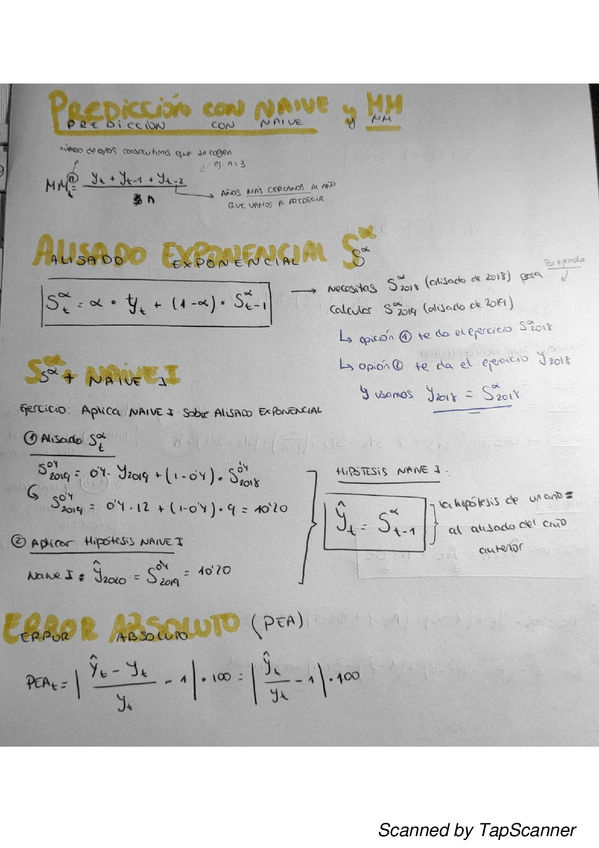 PREDICCIÓN CON NAIVE y MM
PREDICCION CON NAIVE y MM
número de años consecutivos que se cogen
ej n=3
MM_t^(n) = (y_t + y_t-1 + y_t-2) / n
AÑOS MÁS CERCANOS AL AÑO
QUE VAMOS A PREDECIR
ALISADO EXPONENCIAL S^α
ALISADO EXPONENCIAL S^α
S_t^α = α · y_t + (1-α) · S_t-1^α → necesitas S_2018^α (alisado de 2018) para
Por ejemplo
calcular S_2019^α (alisado de 2019)
↳ opción ① te da el ejercicio S_2018^α
↳ opción ② te da el ejercicio y_2018
y usamos y_2018 = S_2018^α
S^α + NAIVE I
S^α + NAIVE I
Ejercicio: Aplica NAIVE I sobre ALISADO EXPONENCIAL
① Alisado S_t^α
S_2019^0'4 = 0'4 · y_2019 + (1-0'4) · S_2018^0'4
↳ S_2019^0'4 = 0'4 · 12 + (1-0'4) · 9 = 10'20
② Aplicar Hipótesis NAIVE I
NAIVE I: ŷ_2020 = S_2019^0'4 = 10'20
HIPÓTESIS NAIVE I:
ŷ_t = S_t-1^α
la hipótesis de un año =
al alisado del año
anterior
ERROR ABSOLUTO (PEA)
ERROR ABSOLUTO
PEA_t = | (ŷ_t - y_t) / y_t - 1 | · 100 = | ŷ_t / y_t - 1 | · 100
Scanned by TapScanner